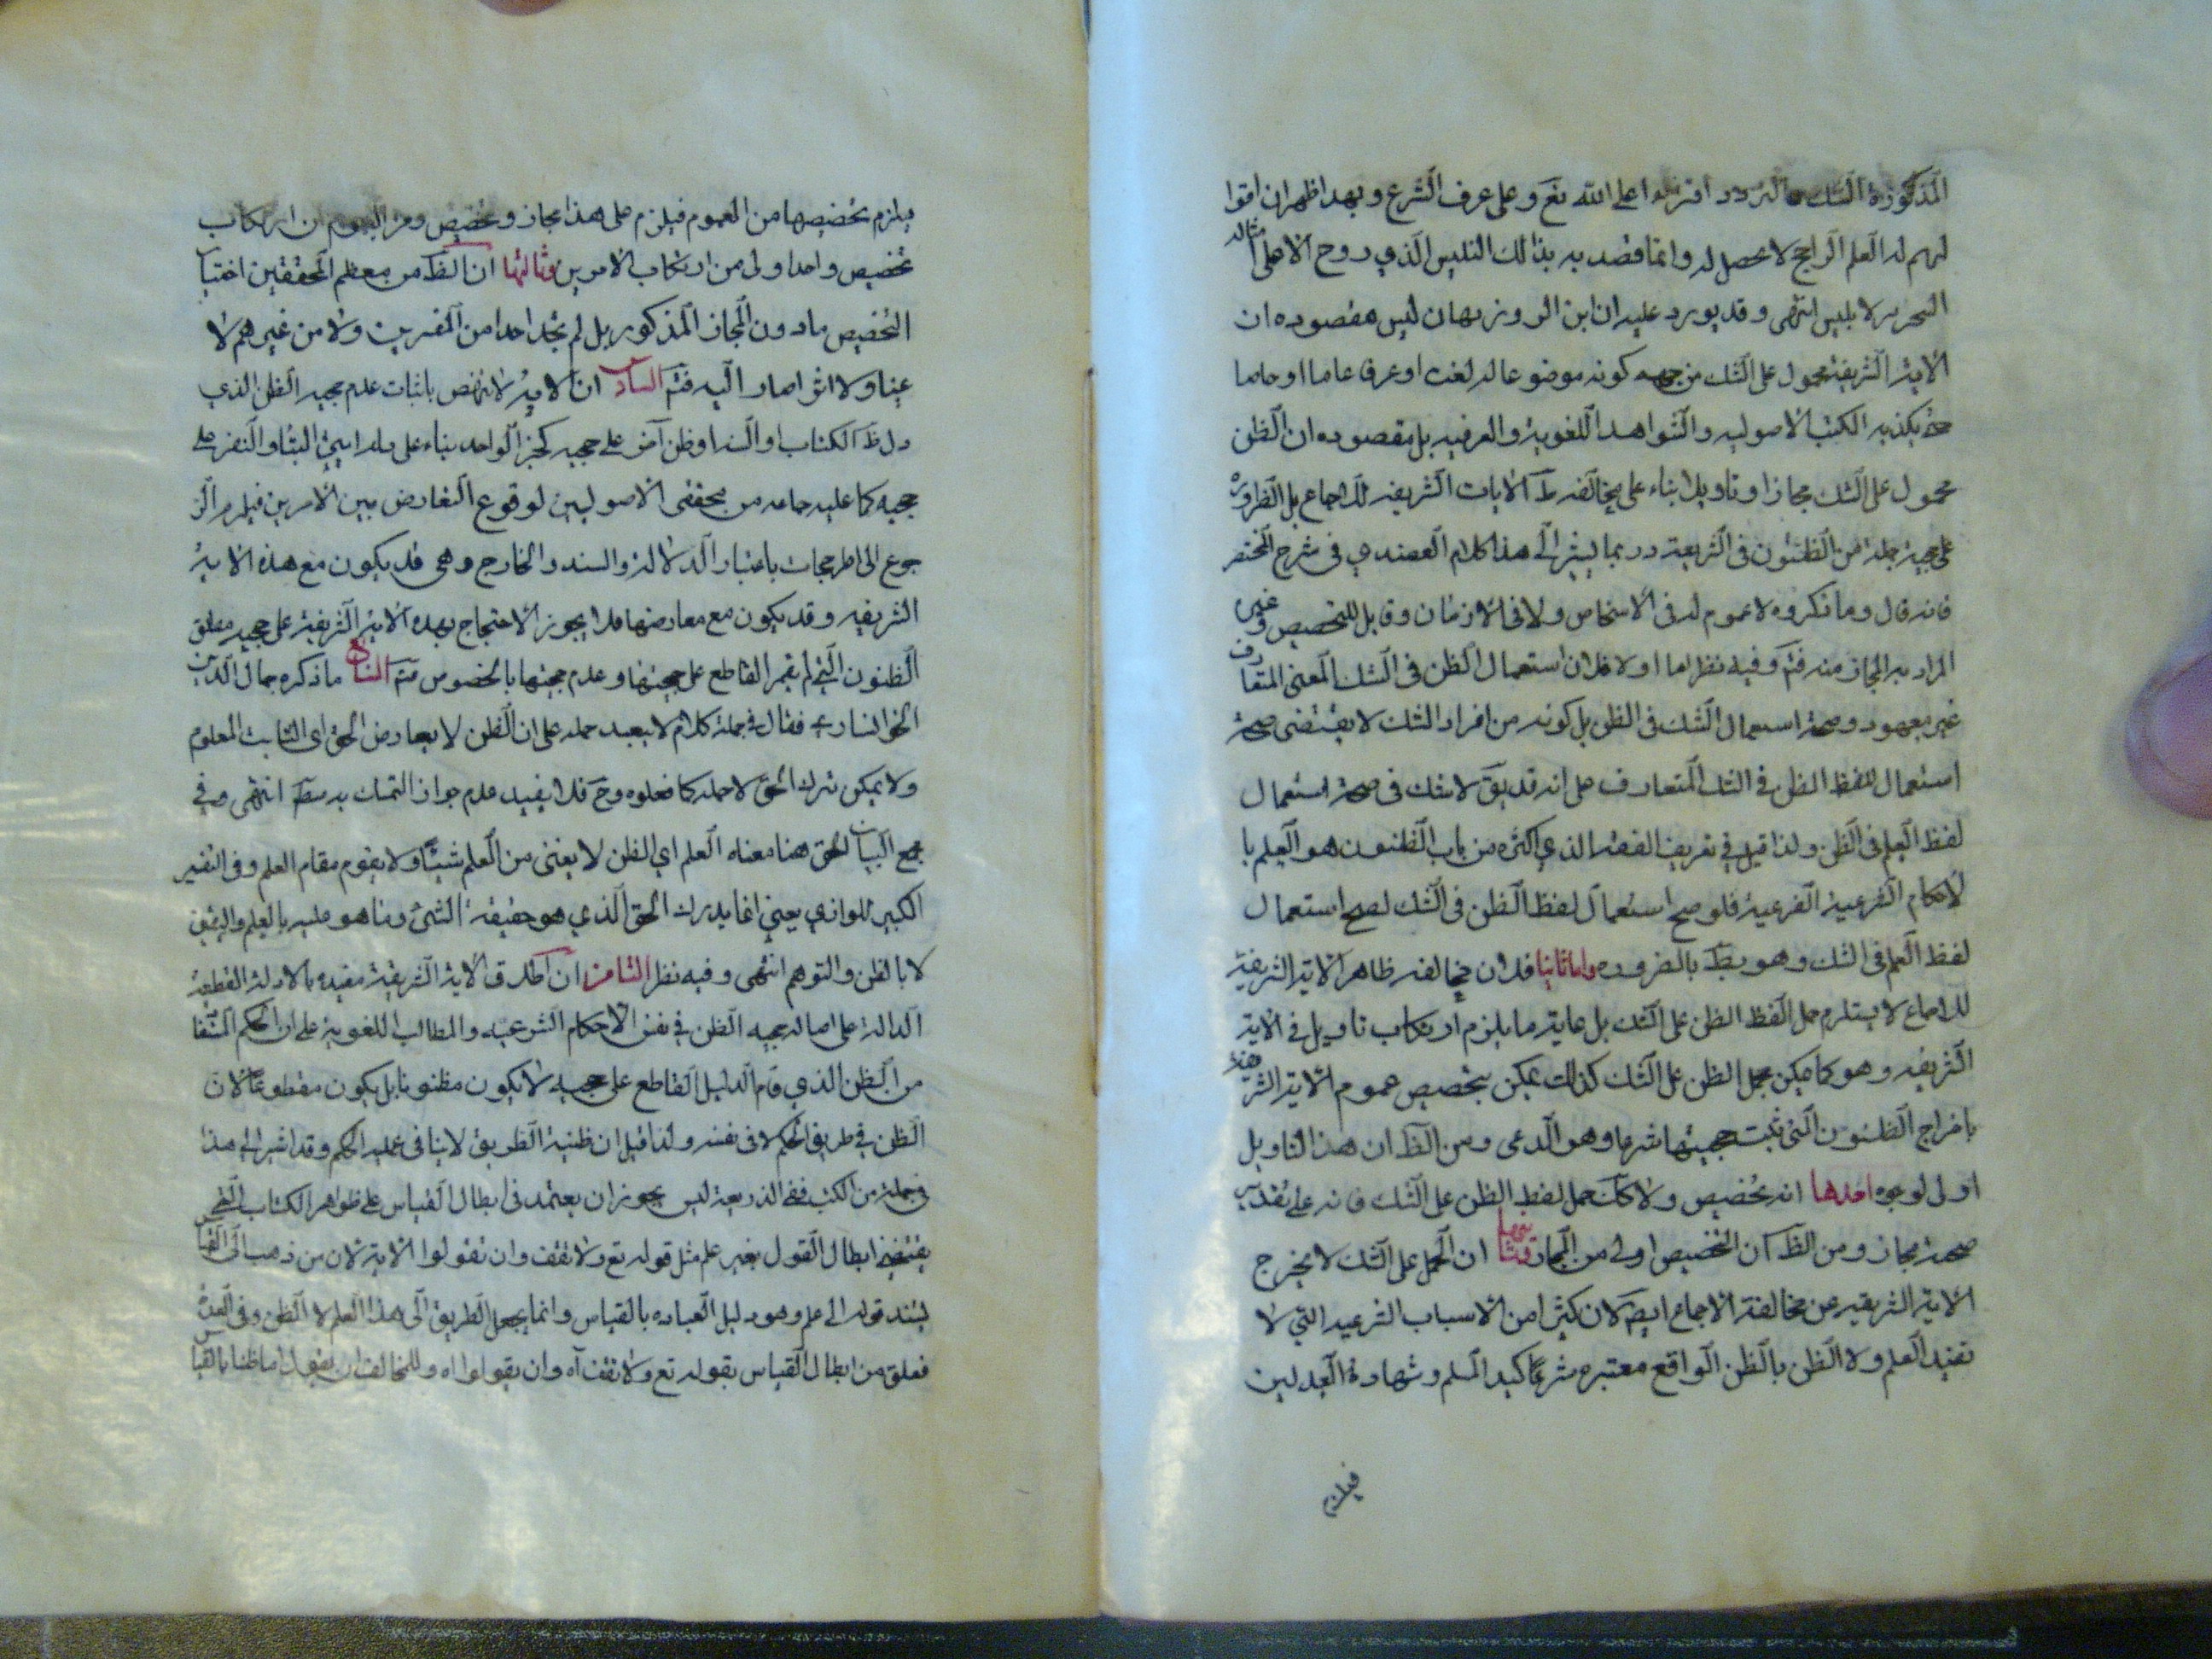 المذكورة الشك والتردد افتراء على الله تع وعلى عرف الشرع وبهذا ظهر ان اقوا
لهم له العلم الراجح لا محصل له وانما قصد به بذالك التلبيس الذي روح الاعلى امثاله
النحرير لا بليس انتهى وقد يورد عليه ان ابن الروزبهان ليس مقصوده ان
الاية الشريفة محمول على الشك من جهة كونه موضوعا له لغة او عرفا عاما او خاصا
حتى يكذبه الكتب الاصوليه والشواهد اللغوية والعرفيه بل مقصوده ان الظن
محمول على الشك مجازا وتاويلا بناء على مخالفة ظ الايات الشريفه للاجماع بل الضرورة
على حجية جملة من الظنون في الشريعة وربما يشير الى هذا كلام العضدي في شرح المختصر
فانه قال وما ذكروه لا عموم له في الاشخاص ولا في الازمان وقابل للتخصيص وغير
المراد به المجاز منه فتم وفيه نظر اما اولا فلان استعمال الظن في الشك المعنى المتعارف
غير معهود وصحة استعمال الشك في الظن بل كونه من افراد الشك لا يقتضى صحة
استعمال للفظ الظن في الشك المتعارف على انه قد يق لا شك في صحة استعمال
لفظ العلم في الظن ولذا قيل في تعريف الفقه الذي اكثره من باب الظنون هو العلم با
لاحكام الشرعية الفرعية فلو صح استعمال لفظ الظن في الشك لصح استعمال
لفظ العلم في الشك وهو بط بالضروره واما ثانيا فلان مخالفة ظاهر الاية الشريفة
للاجماع لا يستلزم حمل لفظ الظن على الشك بل غاية ما يلزم ارتكاب تاويل في الاية
الشريفه وهو كما يمكن بحمل الظن على الشك كذالك يمكن بتخصيص عموم الاية الشريفة
باخراج الظنون التي ثبت حجيتها شرعا وهو المدعى ومن الظ ان هذا التاويل
اولى لوجوه احدها انه تخصيص ولا كك حمل لفظ الظن على الشك فانه على تقدير
صحته مجاز ومن الظ ان التخصيص اولى من المجاز وثانيها ان الحمل على الشك لا يخرج
الاية الشريفه عن مخالفة الاجماع ايض لان كثيرا من الاسباب الشرعيه التي لا
تفيد العلم ولا الظن بالظن الواقع معتبره شرعا كيد المسلم وشهادة العدلين
فيلزم
فيلزم تخصيصها من العموم فيلزم على هذا مجاز وتخصيص ومن المعلوم ان ارتكاب
تخصيص واحد اولى من ارتكاب الامرين وثالثها ان الظ من معظم المحققين اختيار
التخصيص ما دون المجاز المذكور بل لم نجد احدا من المفسرين ولا من غيرهم لا
عينا ولا اثرا صار اليه فتم السادس ان الاية لا تنهض باثبات عدم حجية الظن الذي
دل ظ الكتاب او السنة او ظن اخر على حجيته كخبر الواحد بناء على دلالة ايتي النبا والنفر على
حجيته كما عليه جماعة من محققى الاصوليين لوقوع التعارض بين الامرين فيلزم الر
جوع الى المرجحات باعتبار الدلالة والسند والخارج وهى قد يكون مع هذه الاية
الشريفه وقد يكون مع معارضها فلا يجوز الاحتجاج بهذه الاية الشريفة على حجيه مطلق
الظنون التي لم يقم القاطع على حجيتها وعدم حجيتها بالخصوص فتم السابع ما ذكره جمال الدين
الخوانساري فقال في جملة كلام لا يبعد حمله على ان الظن لا يعارض الحق اي الثابت المعلوم
ولا يمكن ترك الحق لاجله كما فعلوه وح فلا يفيد عدم جواز التمسك به مط انتهى وفي
مجمع البيان الحق هنا معناه العلم اي الظن لا يغنى من العلم شيئا ولا يقوم مقام العلم وفى التفسير
الكبير للرازي يعني انما يدرك الحق الذي هو حقيقة الشئ وما هو عليه بالعلم واليقين
لا بالظن والتوهم انتهى وفيه نظر الثامن ان اطلاق الاية الشريفة مقيده بالادلة القطعية
الدالة على اصاله حجيه الظن في نفس الاحكام الشرعيه والمطالب اللغوية على ان الحكم المستفا
من الظن الذي قام الدليل القاطع على حجيه لا يكون مظنونا بل يكون مقطوعا لان
الظن في طريق الحكم لا في نفسه ولذا قيل ان ظنية الطريق لا ينافى علمية الحكم وقد اشير الى هذا
في جملة من الكتب ففي الذريعة ليس يجوز ان يعتمد في ابطال القياس على ظواهر الكتاب التي
يقتضى ابطال القول بغير علم مثل قوله تع ولا تقف وان تقولوا الاية لان من ذهب الى القياس
يسند قوله الى علم وهو دليل العباده بالقياس وانما يجعل الطريق الى هذا العلم لا الظن وفى العدة
فعلق من ابطال القياس بقوله تع ولا تقف آه وان يقولوا اه وللمخالف ان يقول اما ظنا بالقياس